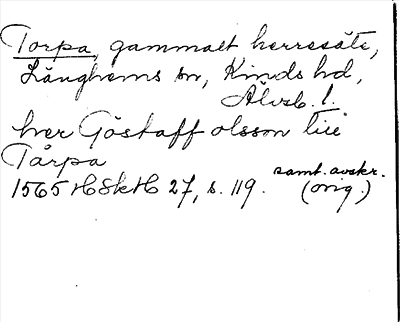 Torpa, gammalt herresäte,
Länghems sn, Kinds hd,
Älvsb. l.
her Göstaff olsson tiil
Tårpa
samt. avskr.
1565 HSkH 27, s. 119. (orig.)